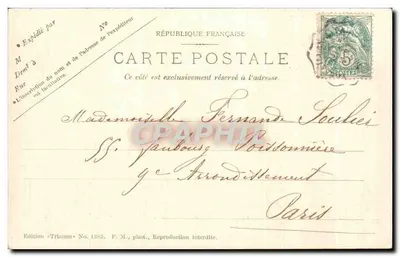 RÉPUBLIQUE FRANÇAISE
CARTE POSTALE
Ce côté est exclusivement réservé à l'adresse.
Expédié par
M
Demt à
Rue
N°
*L'inscription du nom et de l'adresse de l'expéditeur
est facultative.
5
Mademoiselle Fernande Soulier
55. faubourg Poissonnière
9e Arrondissement
Paris
CPAPHIL
Edition «Trianon» No. 1203. P. M., phot., Reproduction interdite.